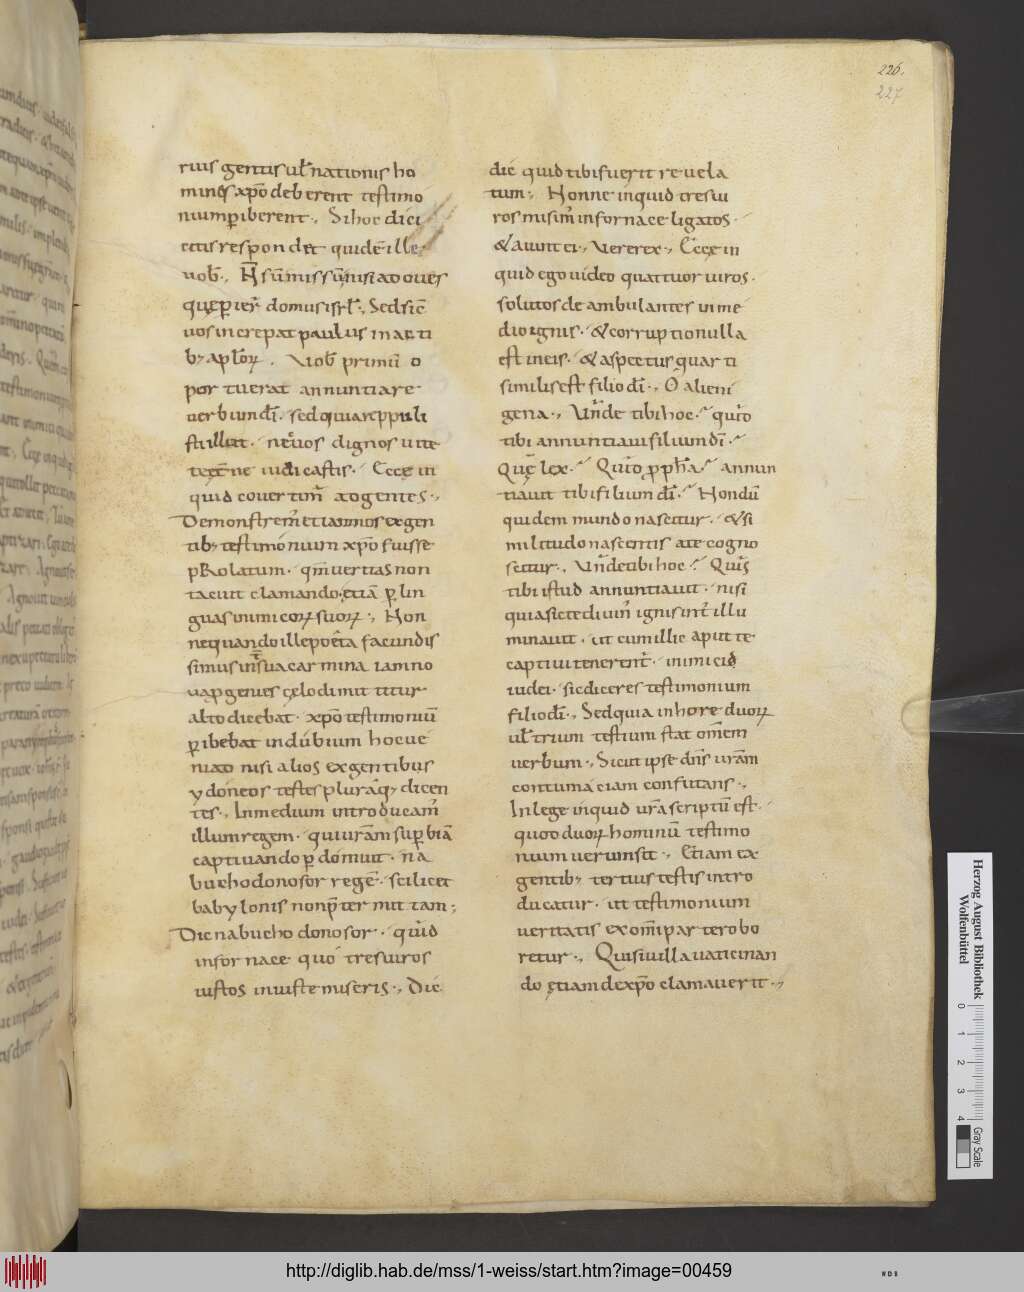 226.
227
rius gentis ul̅ nationis ho
mines xp̅o deberent testimo
nium p̲iberent ., Si hoc dici
tis respondet quidē ille
uob̅ ., N̅ sū missus nisi ad oues
quę p̲ier̅ domus isrl̅ ., Sed sic̅
uos increpat paulus in acti
b; aplōꝝ . Uob̅ primū o
portuerat annuntiare
uerbum dī . sed quia reppuli
stis illud . nec uos dignos uitę
ęt̅ne iudicastis . Ecce in
quid conuertim̅ ad gentes .,
Demonstrem̅ etiam nos ex gen
tib; testimonium xp̅o fuisse
prolatum . qm̅ ueritas non
tacuit clamando . etiā p̲ lin
guas inimicoꝝ suoꝝ ., Non
ne quando ille poeta facundis
simus int̅ sua carmina iam no
ua p̲genies cęlo dimittitur
alto dicebat . xp̅o testimoniū
p̲ibebat in dubium hoc ue
niad nisi alios ex gentibus
ydoneos testes pluraq; dicen
tes ., In medium introducam̅
illum regem . qui ur̅am sup̲biā
captiuando p̲domuit . na
buchodonosor regē . scilicet
babylonis non p̲termittam ;
Dic nabuchodonosor . quid
in fornace quō tres uiros
iustos inuiste miseris ., Dic
dic quid tibi fuerit reuela
tum ., Nonne inquid tres ui
ros misim̅ in fornace ligatos .
& aiunt ei ., Uere rex ., Ecce in
quid ego uideo quattuor uiros .
solutos deambulantes in me
dio ignis . & corruptio nulla
est in eis . & aspectus quarti
similis est filio dī ., O alieni
gena ., Unde tibi hoc . quis
tibi annuntiauit filium dī .
Quę lex . Quis p̲ph̅a . annun
tiauit tibi filium dī . Nondū
quidem mundo nascitur . & si
militudo nascentis a te cogno
scitur ., Unde tibi hoc . Quis
tibi istud annuntiauit . nisi
quia sic te diuin̅ ignis int̅ illu
minauit . ut cum illic apud te
captiui tenerent̅ . inimici
iudei . sic diceres testimonium
filio dī ., Sed quia in hore duoꝝ
ul̅ trium testium stat om̅e
uerbum ., Sicut ipse dn̅s ur̅am
contumaciam confutans .,
In lege inquid ur̅a scriptū est .
quod duoꝝ hominū testimo
nium uerum sit ., Etiam ex
gentib; tertius testis intro
ducatur . ut testimonium
ueritatis ex om̅i parte robo
retur ., Quis iuilla uaticinan
do ętiam de xp̅o clamauerit .,
Herzog August Bibliothek
Wolfenbüttel
0 1 2 3 4
Gray Scale
http://diglib.hab.de/mss/1-weiss/start.htm?image=00459